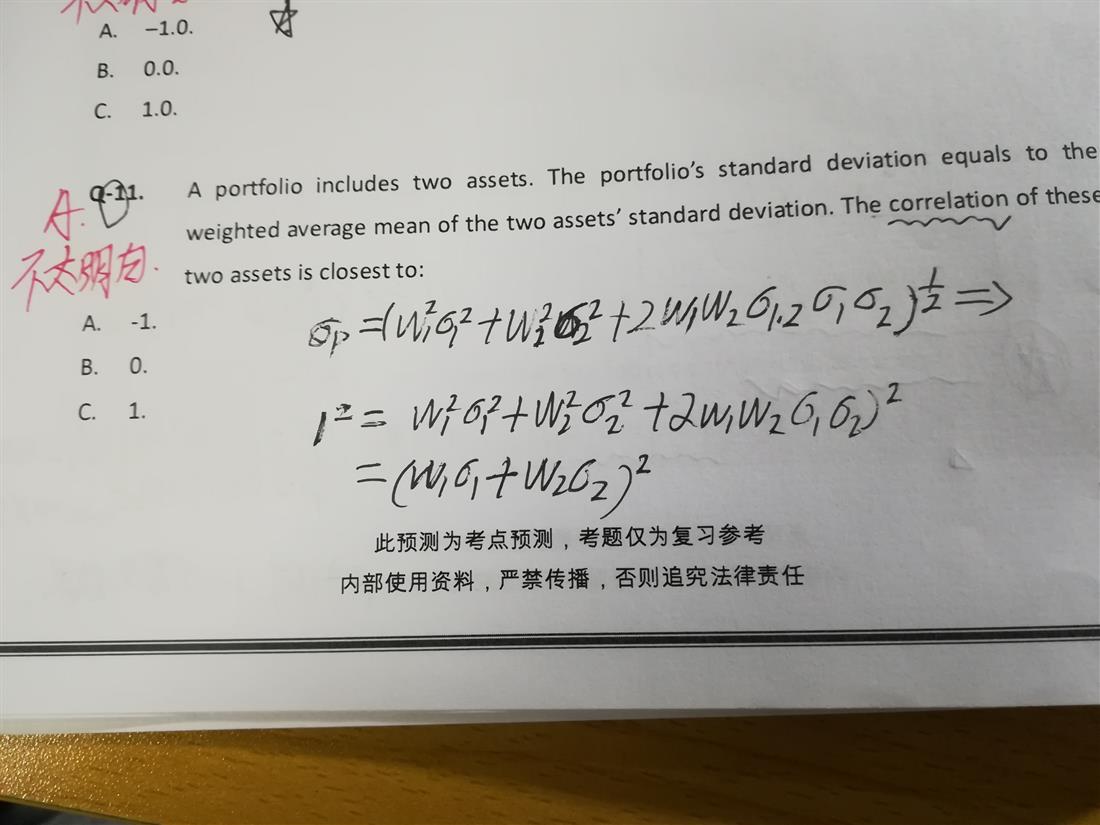 A. –1.0.
B. 0.0.
C. 1.0.
Q-11. A portfolio includes two assets. The portfolio's standard deviation equals to the
A.
weighted average mean of the two assets' standard deviation. The correlation of these
不太明白.
two assets is closest to:
A. -1.
B. 0.
C. 1.
σp=(W₁²σ₁²+W₂²σ₂²+2W₁W₂σ₁.₂σ₁σ₂)^½ =>
1²= W₁²σ₁²+W₂²σ₂²+2W₁W₂σ₁σ₂)²
=(W₁σ₁+W₂σ₂)²
此预测为考点预测，考题仅为复习参考
内部使用资料，严禁传播，否则追究法律责任